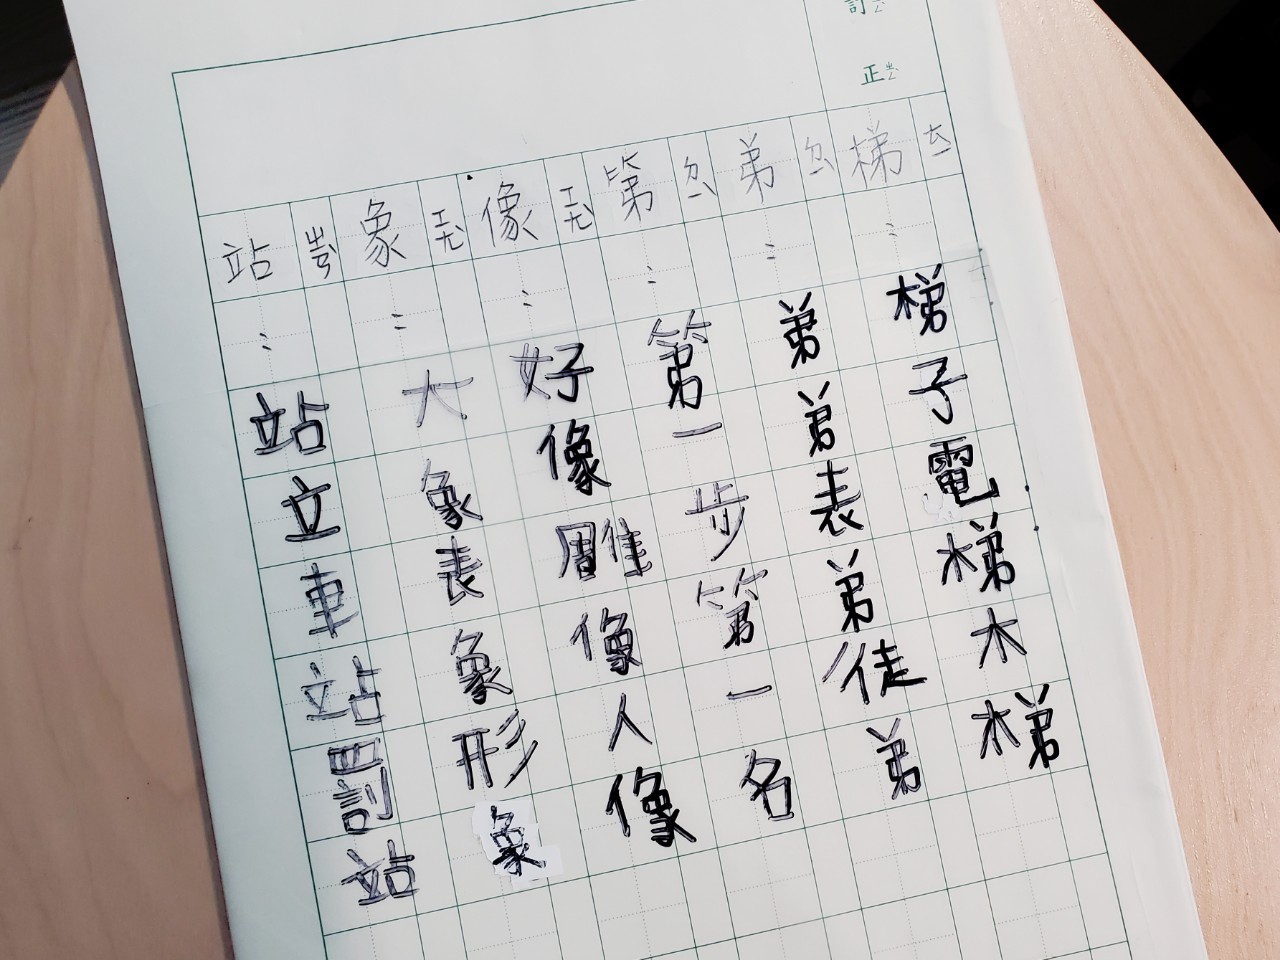 訂正
梯ㄊㄧ：梯子電梯木梯
弟ㄉㄧˋ：弟弟表弟徒弟
第ㄉㄧˋ：第一步第一名
像ㄒㄧㄤˋ：好像雕像人像
象ㄒㄧㄤˋ：大象表象形象
站ㄓㄢˋ：站立車站罰站